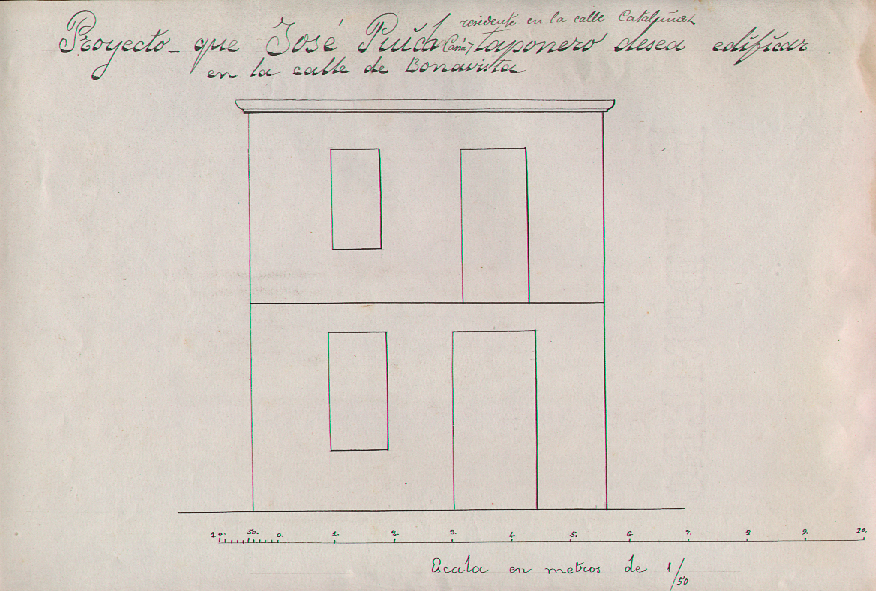 residente en la calle Cataluña
Proyecto que José Puich taponero desea edificar
en la calle de Bonavista
10. 50. 0. 1. 2. 3. 4. 5. 6. 7. 8. 9. 10.
Escala en metros de 1/50